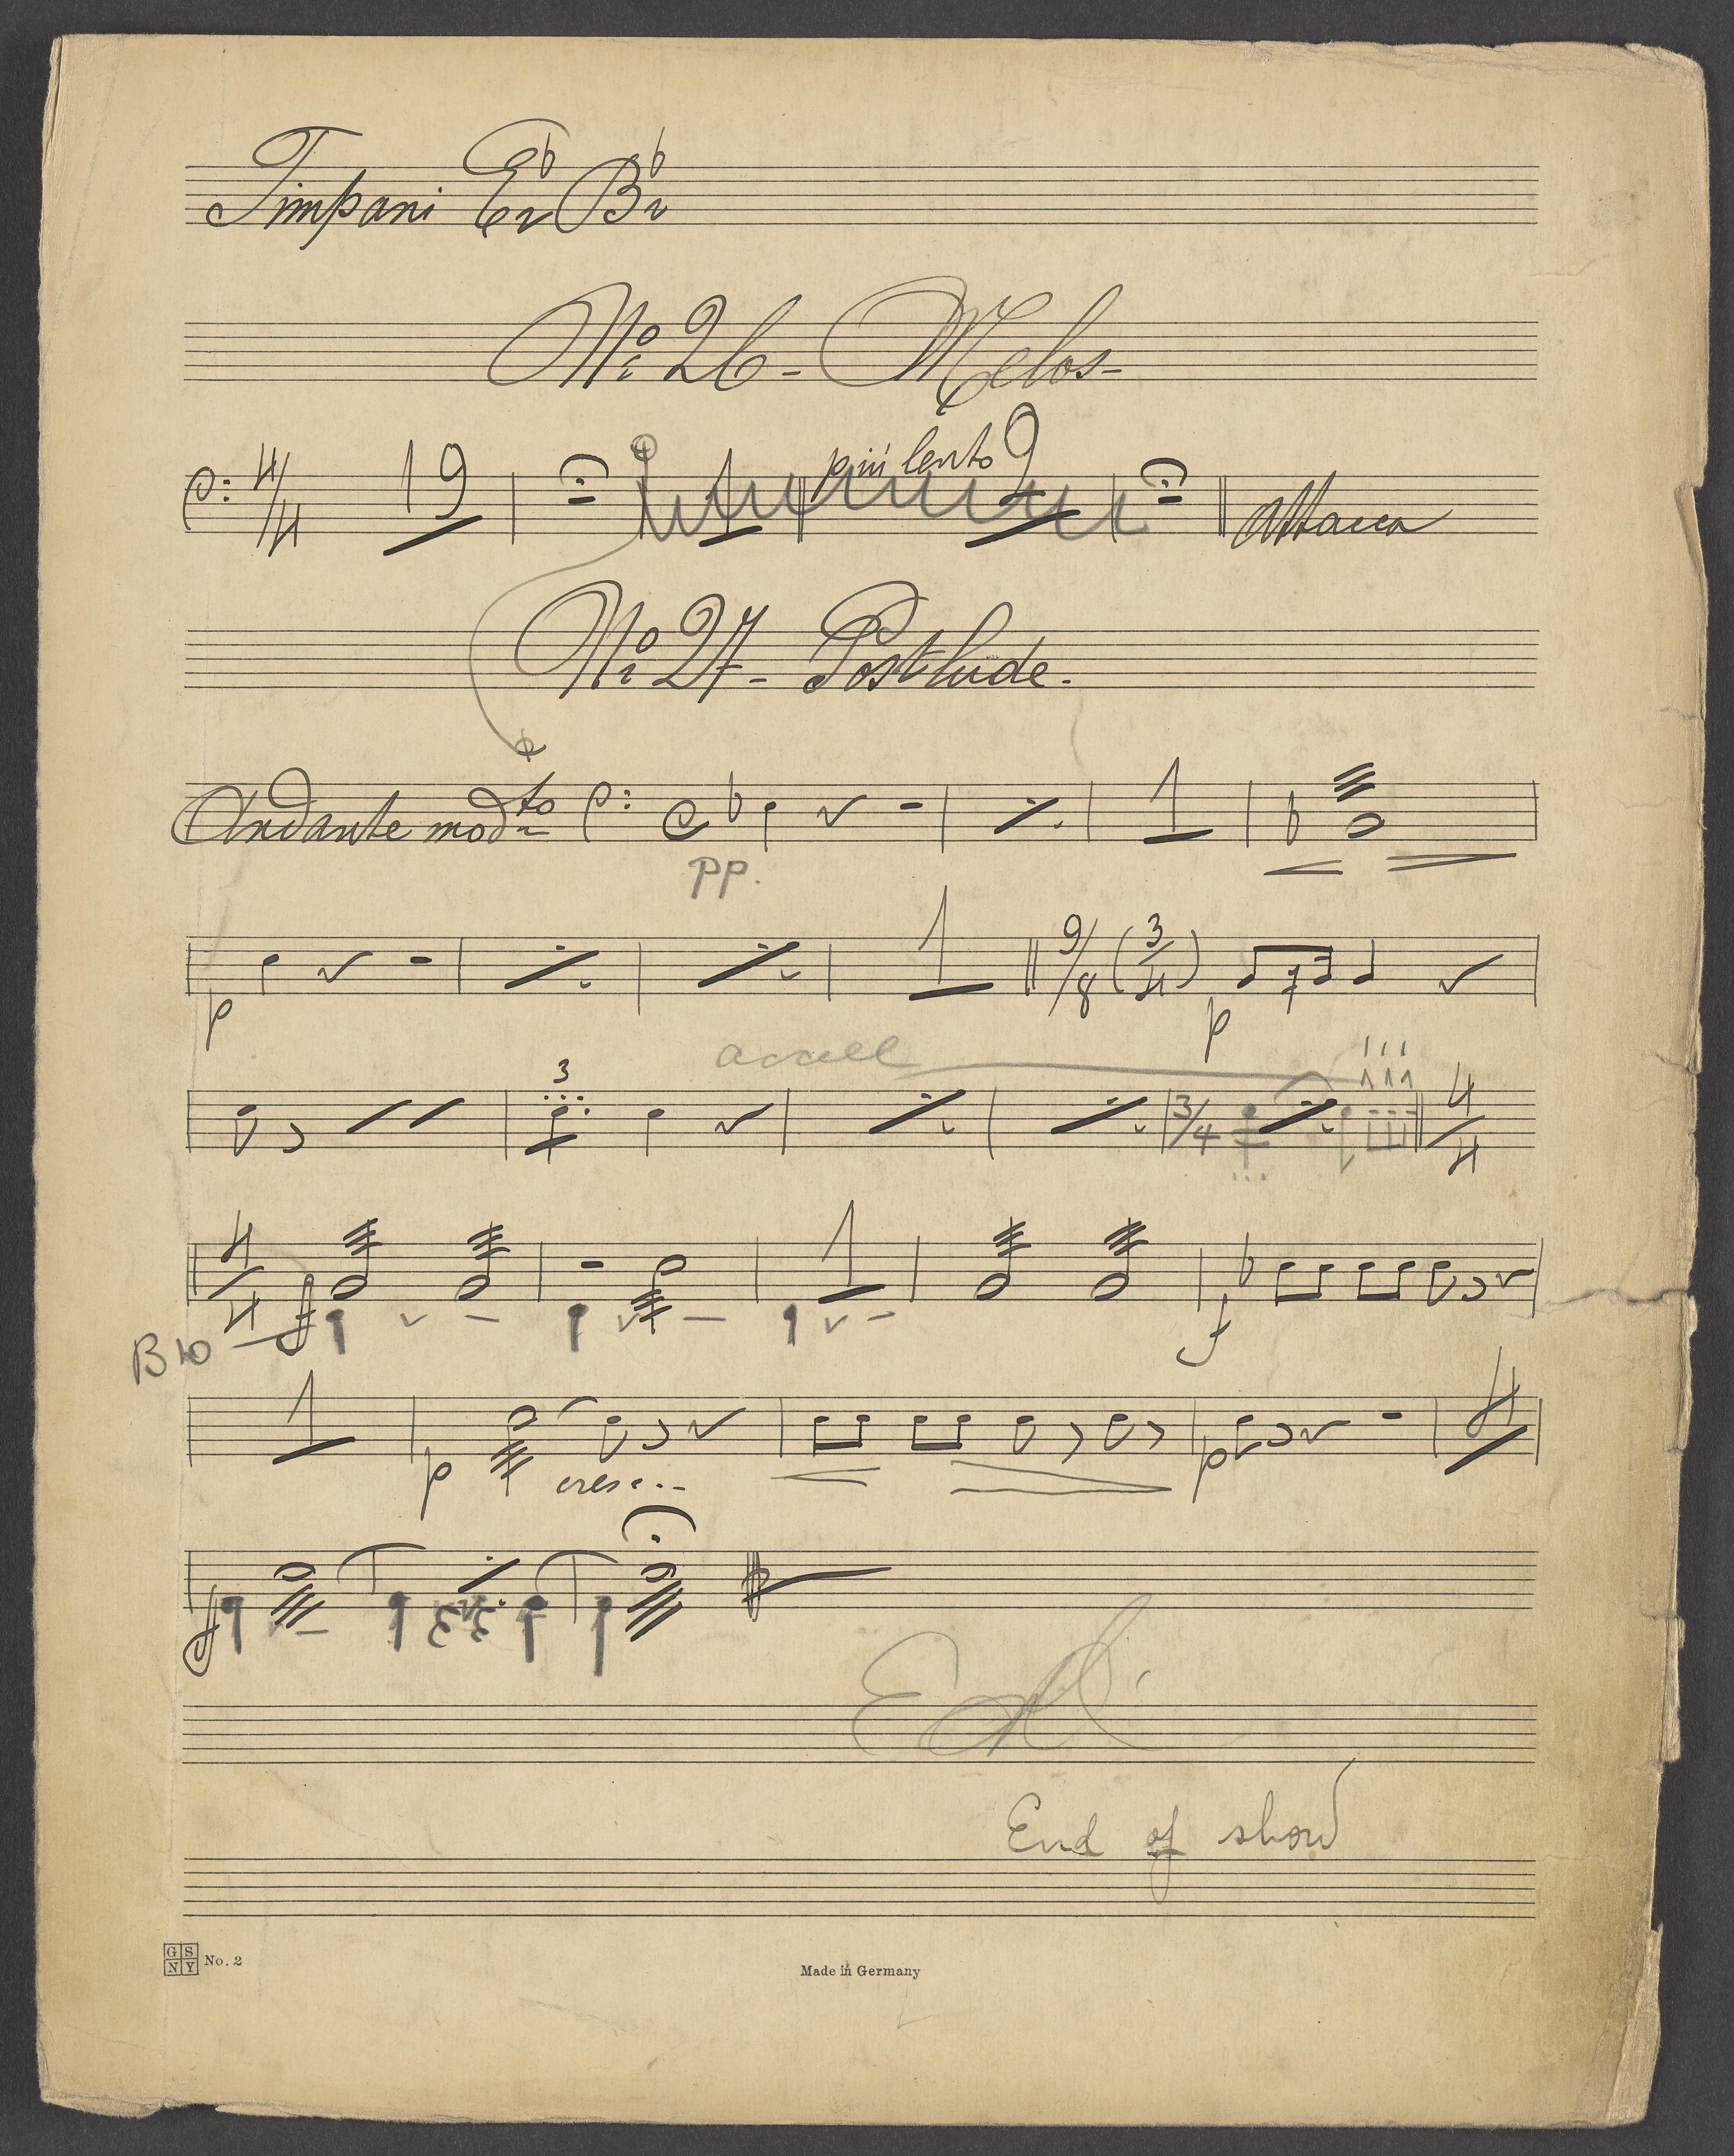 Timpani E♭ B♭
No 26 - Melos -
4/4 19 1 più lento 9 attacca
No 27 - Postlude.
Andante modto C 1
pp.
1 9/8 (3/4)
p p
accell
3 3/4 4/4
4/4 f 1 f
B♭
1 p cresc... p 4
f
End of show
GSNY No. 2
Made in Germany